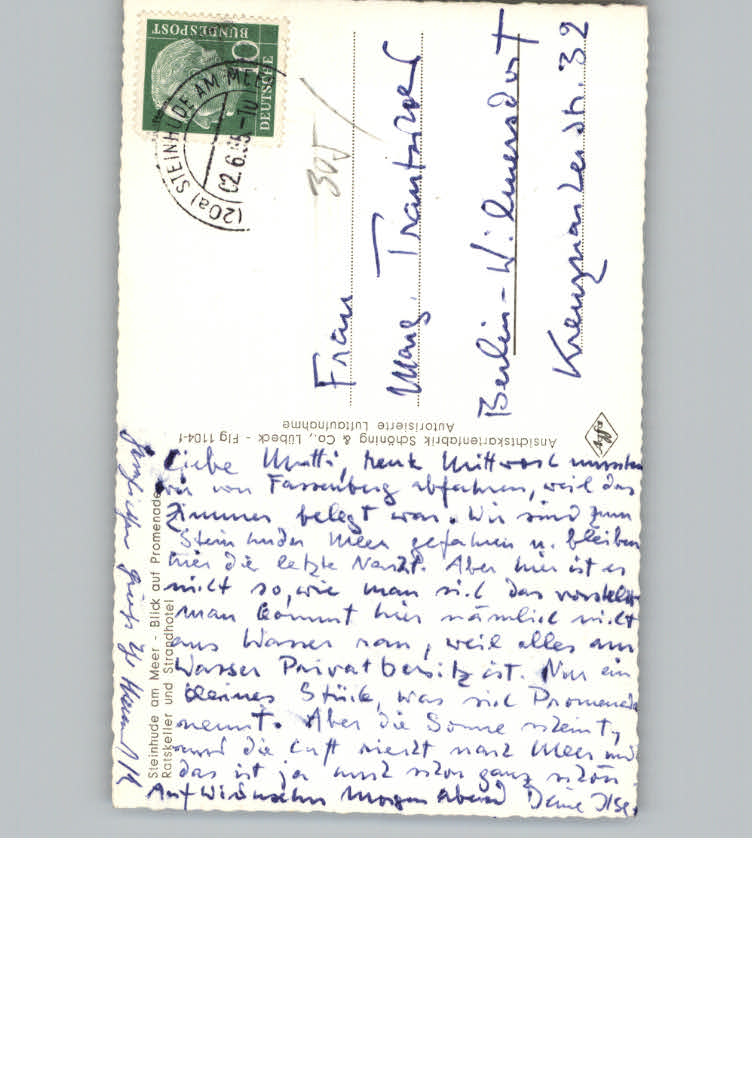 Liebe Mutti, heute Mittwoch mussten
wir von Fassenberg abfahren, weil das
Zimmer belegt war. Wir sind zum
Steinhuder Meer gefahren u. bleiben
hier die letzte Nacht. Aber hier ist es
nicht so, wie man sich das vorstellt
man kommt hier nämlich nicht
ans Wasser ran, weil alles am
Wasser Privatbesitz ist. Nur ein
kleines Stück, was sich Promenade
nennt. Aber die Sonne scheint,
und die Luft riecht nach Meer und
das ist ja auch schon ganz schön
Auf Wiedersehn Morgen abend Deine Ilse.
Grüße
Steinhude am Meer - Blick auf Promenade,
Ratskeller und Strandhotel
Ansichtskartenfabrik Schöning & Co., Lübeck - Flg 1104-f
Autorisierte Luftaufnahme
Frau
Marg. Trantzschel
Berlin-Wilmersdorf
Kreuznacher Str. 32
305
DEUTSCHE
BUNDESPOST
10
(20a) STEINHUDE AM MEER
02.6.55.-10